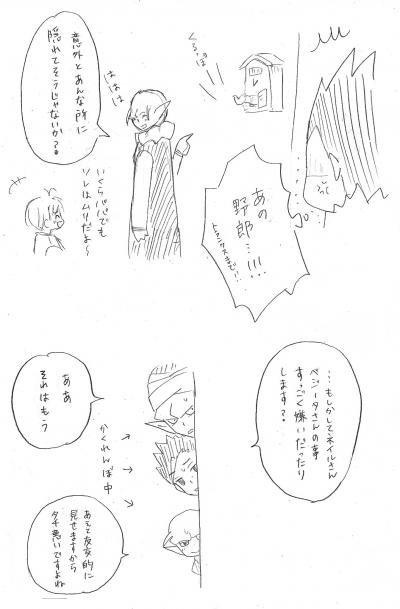 くるっぽー
あの
野郎…!!!
トランクスまで!!
意外とあんな所に
隠れてそうじゃないか?
ははは
いくらパパでも
ソレはムリだよ〜
…もしかしてネイルさん
ベジータさんの事
すっごく嫌いだったり
します?
ああ
それはもう
かくれんぼ中
あえて友好的に
見せますから
タチ悪いですよね